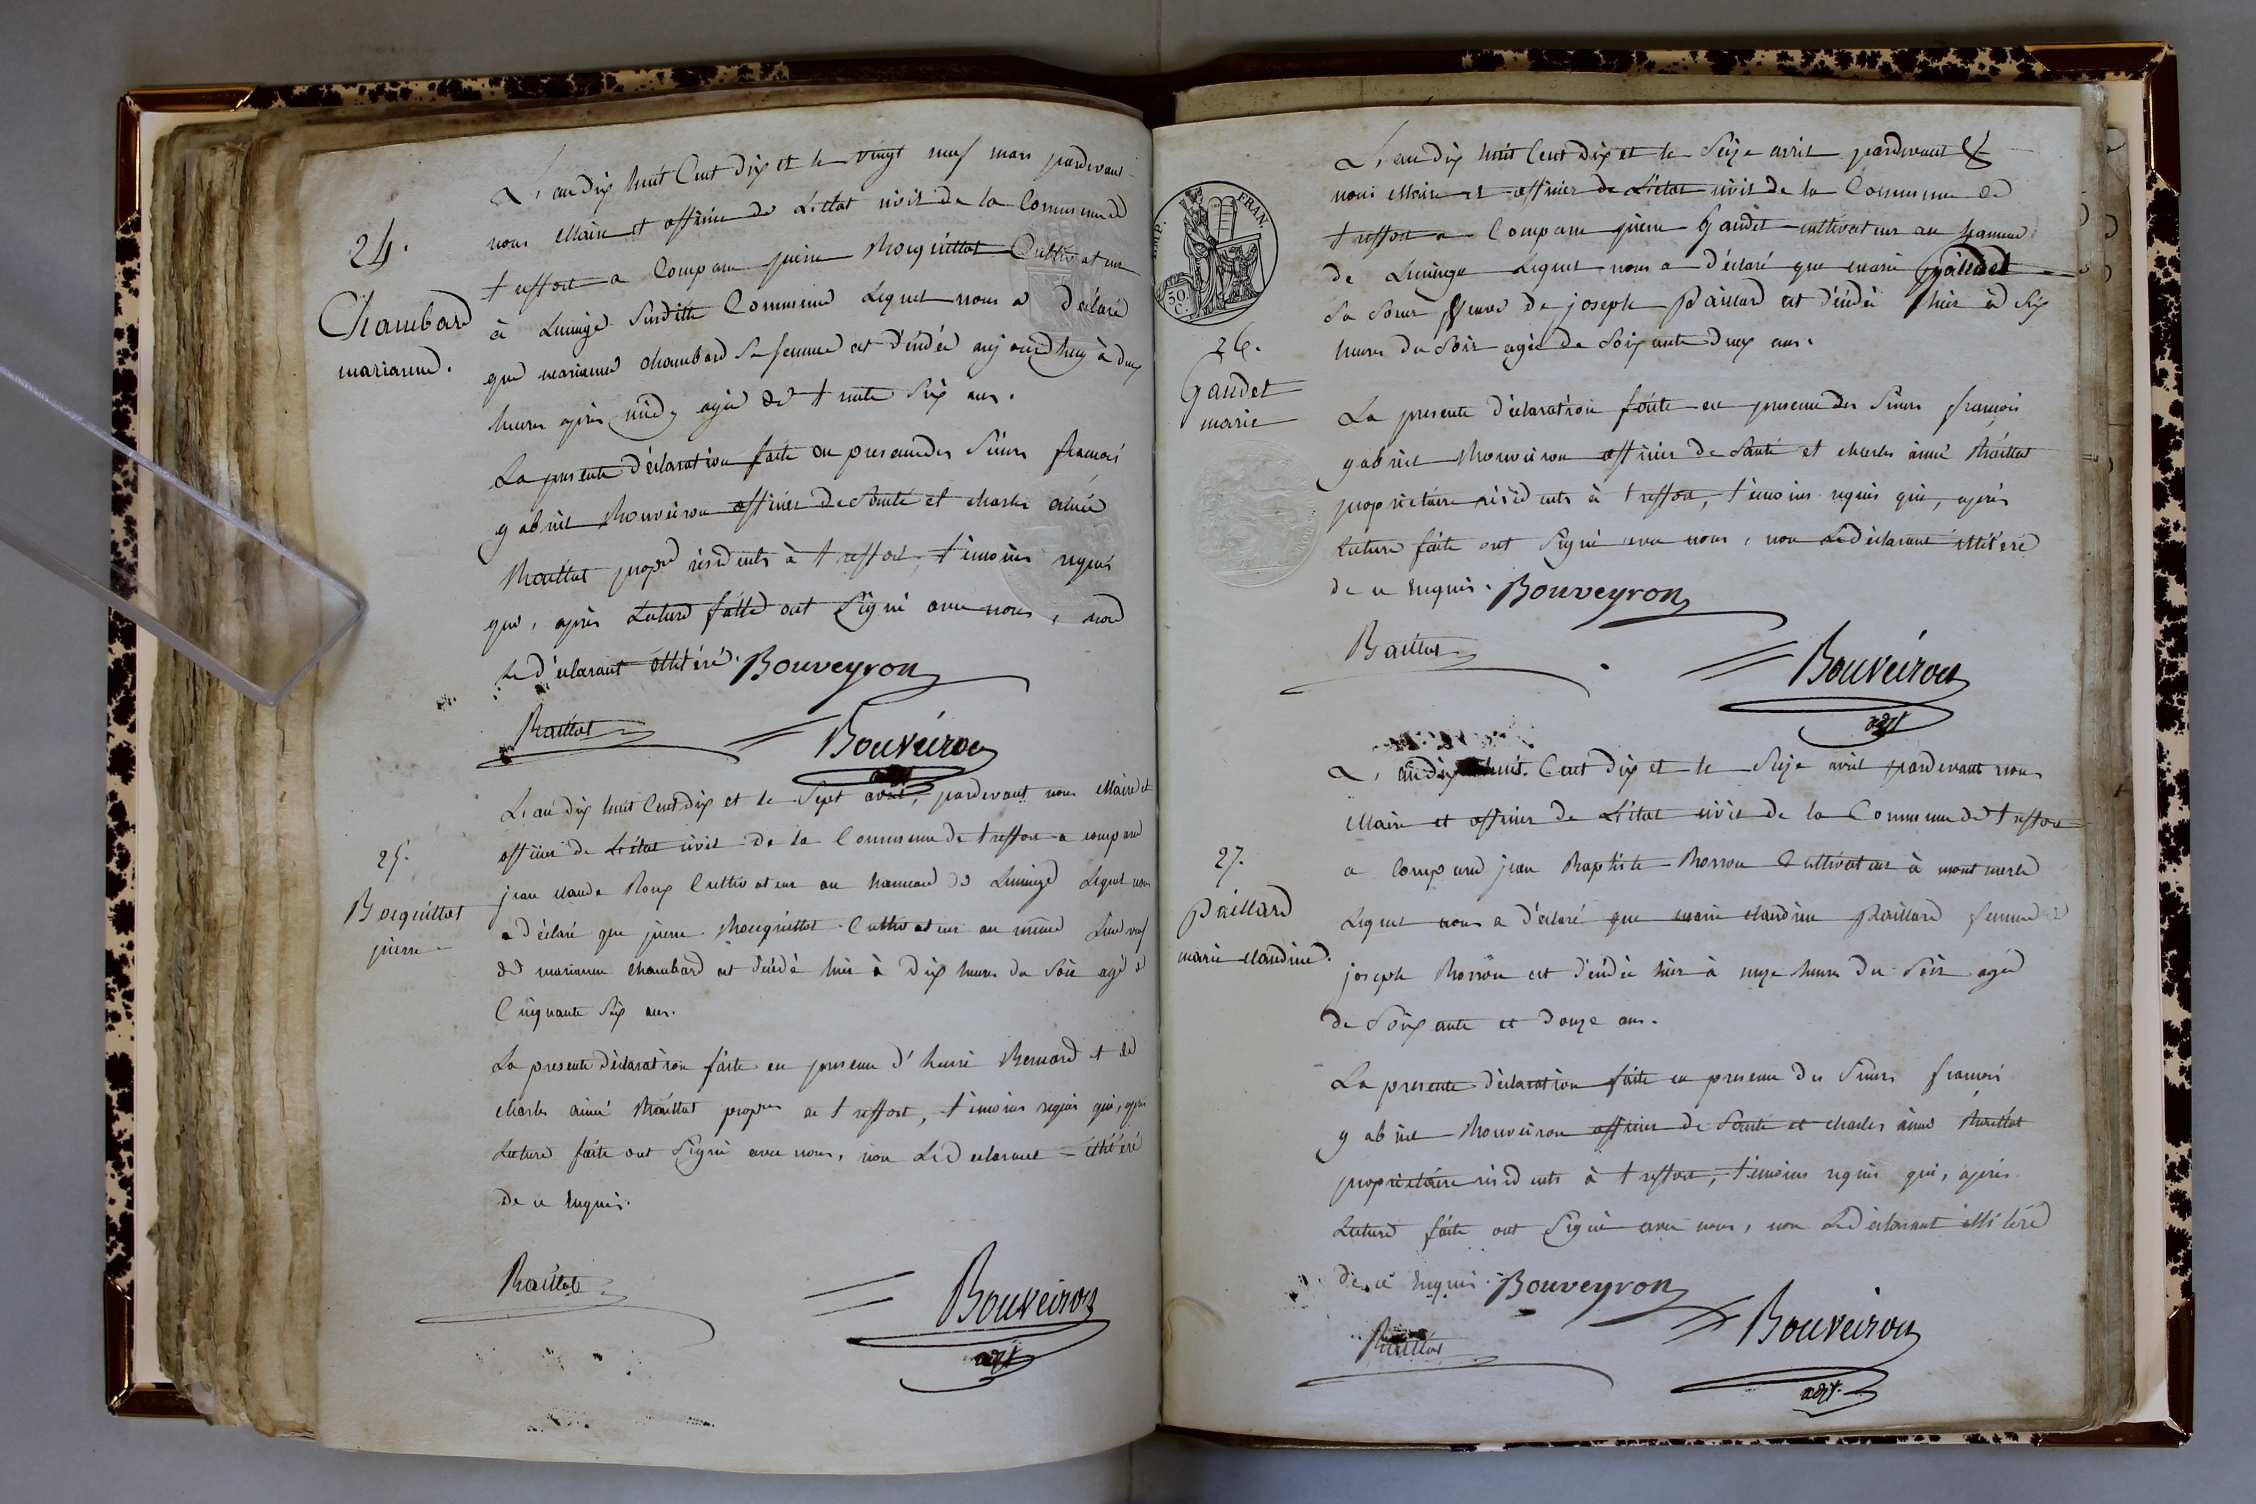 24.
Chambard
marianne.
L'an dix huit Cent dix et le vingt neuf mars pardevant
nous Maire et officier de L'état civil de la Commune de
treffort a Comparu pierre Bocquillot Cultivateur
à Lucinge Susditte Commune Lequel nous a déclaré
que marianne chambard Sa femme est décédée aujourdhuy à deux
heures après midy agée de trente Six ans.
La presente déclaration faite en presence des Sieurs françois
gabriel Bouveiron officier de Santé et charles aimé
Baillat propre résidents à treffort, témoins requis
qui, après Lecture faitte ont Signé avec nous, non
Le déclarant illitéré. Bouveyron
Baillat Bouveiron
adjt
25.
Bocquillot
pierre
L'an dix huit Cent dix et le Sept avril, pardevant nous Maire et
officier de L'état civil de la Commune de treffort a comparu
jean claude Roux Cultivateur au hameau de Lucinge Lequel nous
a déclaré que pierre Bocquillot Cultivateur au même Lieu veuf
de marianne chambard est décédé hier à Dix heures du Soir agé de
Cinquante Six ans.
La presente déclaration faite en presence d'henri Bernard et de
charles aimé Baillat propres de treffort, témoins requis qui, après
Lecture faite ont Signé avec nous, non Le déclarant illitéré
de ce enquis.
Baillat Bouveiron
adjt
IMP. FRAN.
50 C.
26.
Gaudet
marie
L'an dix huit Cent dix et le Seize avril pardevant
nous Maire et officier de L'état civil de la Commune de
treffort a Comparu pierre Gaudet cultivateur au hameau
de Lucinge Lequel nous a déclaré que marie Gaudet
Sa Soeur Veuve de joseph Paillard est décédée hier à Six
heures du Soir agée de Soixante deux ans.
La presente déclaration faite en presence des Sieurs françois
gabriel Bouveiron officier de Santé et charles aimé Baillat
propriétaire résidents à treffort, témoins requis qui, après
Lecture faite ont Signé avec nous, non Le déclarant illitéré
de ce enquis. Bouveyron
Baillat Bouveiron
adjt
27.
Paillard
marie claudine.
L'an dix huit Cent dix et le Seize avril pardevant nous
Maire et officier de L'état civil de la Commune de treffort
a Comparu jean Baptiste Borron Cultivateur à montmerle
Lequel nous a déclaré que marie claudine Paillard femme de
joseph Borron est décédée hier à onze heures du Soir agée
de Soixante et douze ans.
La presente déclaration faite en presence des Sieurs françois
gabriel Bouveiron officier de Santé et charles aimé Baillat
propriétaire résidents à treffort, témoins requis qui, après
Lecture faite ont Signé avec nous, non Le déclarant illitéré
de ce enquis. Bouveyron
Baillat Bouveiron
adjt.